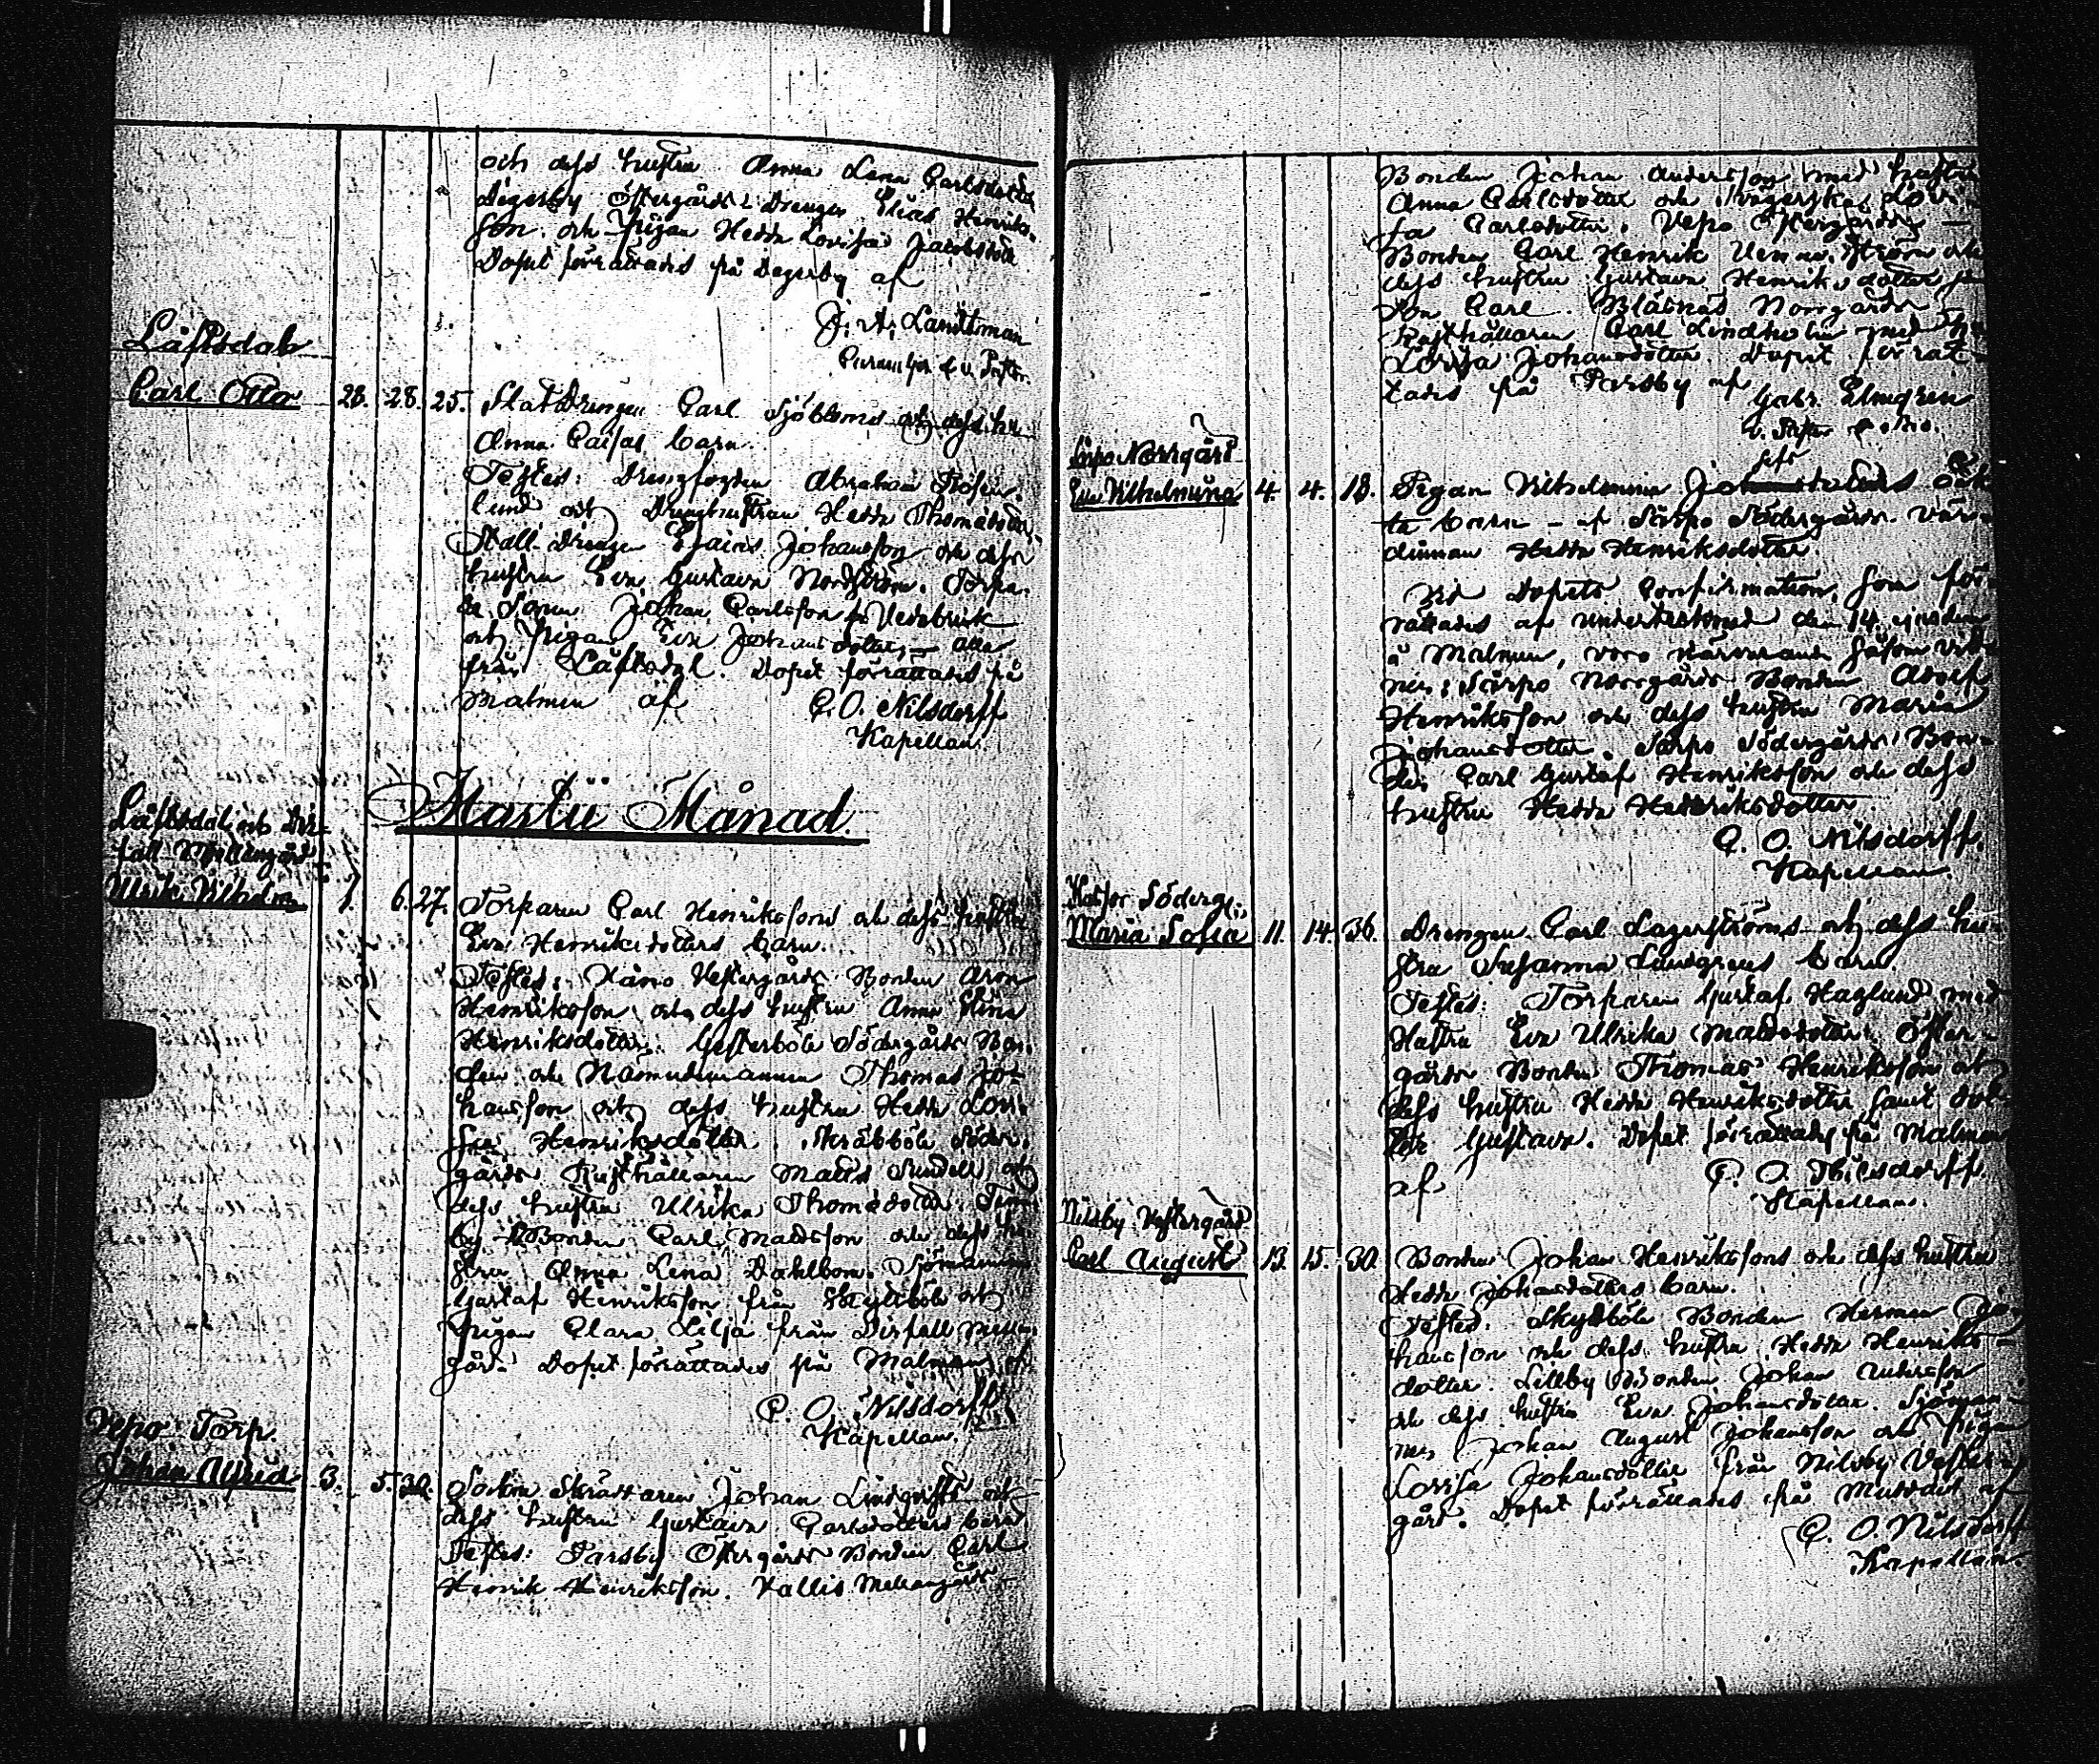 och dess hustru Anna Lena Carlsdotter
Degerby Östergårds Drengen Elias Henriks-
son och Pigan Hedda Lovisa Jacobsdotter
Dopet förrättades på Degerby af
J. A. Landtman
v. Pastor
Låftsdal
Carl Otto 28. 28. 25. Statdrengen Carl Sjöbloms och dess hu
Anna Caisas barn
Testes: Drengfogden Abraham Rosen-
lund och Drenghustrun Hedda Thomasdotter
Stall-Drengen Esaias Johansson och dess
hustru Eva Gustava Nordström. Torpa-
re Sonen Johan Carlsson från
och Pigan Eva Johansdotter, – alla
från Låftsdal. Dopet förrättades på
Malmen af C. O. Nilsdorff
Kapellan.
Martii Månad.
Låftsdal och Dir-
fall Mellangård
Ulrik Vilhelm 1. 6. 27. Torparen Carl Henrikssons och dess hustru
Eva Henriksdotters barn.
Testes: Vestergårds Bonden Aron
Henriksson och dess hustru Anna Stina
Henriksdotter. Gesterböle Södergårds Bon-
den och Nämndemannen Thomas Jo-
hansson och dess hustru Hedda Lovi-
sa Henriksdotter. Skräbböle Söder-
gårds Rusthållaren Matts Sundell och
dess hustru Ulrika Thomasdotter.
by Bonden Carl Mattsson och dess hu
stru Anna Lena Dahlbom. Sjömannen
Gustaf Henriksson från Skyttböle och
Pigan Clara Lilja från Dirfall Mellan-
gård. Dopet förrättades på Malmen af
C. O. Nilsdorff
Kapellan.
Vepo Torp.
Johan Alfred 3. 5. 30. Sockne Skräddaren Johan Lindqvists och
dess hustru Gustava Carlsdotters barn
Testes: Parsby Östergårds Bonden Carl
Henrik Henriksson. Vallis Mellangårds
Bonden Johan Andersson med hustru
Anna Carlsdotter och Svägerska Lovi-
sa Carlsdotter. Vepo Östergårds
Bonden Carl Henrik Vennerström och
dess hustru Gustava Henriksdotter
Son Carl. Blåsnäs Norrgårds
Rusthållaren Carl Lindholm med hu
Lovisa Johansdotter. Dopet förrät-
tades på Parsby af Gabr. Elmgren
v. Pastor
Sorpo Norrgård
Eva Vilhelmina 4. 4. 18. Pigan Vilhelmina oäk
ta barn – af Sorpo Södergårds Vär-
dinnan Hedda Henriksdotter
Vid Dopets Confirmation, som för-
rättades af undertecknad den 14 ejusdem
å Malmen, voro närvarande såsom vitt-
nen: Sorpo Norrgårds Bonden Adolf
Henriksson och dess hustru Maria
Johansdotter. Sorpo Södergårds Bon-
den Carl Gustaf Henriksson och dess
hustru Hedda Henriksdotter.
C. O. Nilsdorff.
Kapellan.
Södergs.
Maria Sofia 11. 14. 36. Drengen Carl Lagerströms och dess hu-
stru Susanna Lundgrens barn.
Testes: Torparen Gustaf Haglund med
Hustru Eva Ulrika Mattsdotter. Öster-
gårds Bonden Thomas Henriksson och
dess hustru Hedda Henriksdotter samt dot-
ter Gustava. Dopet förrättades på Malmen
af C. O. Nilsdorff
Kapellan.
Nilsby Vestergård
Carl August 13. 15. 30. Bonden Johan Henrikssons och dess hustru
Hedda Johansdotters barn.
Testes. Skyttböle Bonden Herman Jo-
hansson och dess hustru Hedda Henriks-
dotter. Lillby Bonden Johan Andersson
och dess hustru Eva Johansdotter. Sjöman-
nen Johan August Johansson och Pigan
Lovisa Johansdotter från Nilsby Vester-
gård. Dopet förrättades på af
C. O. Nilsdorff
Kapellan.